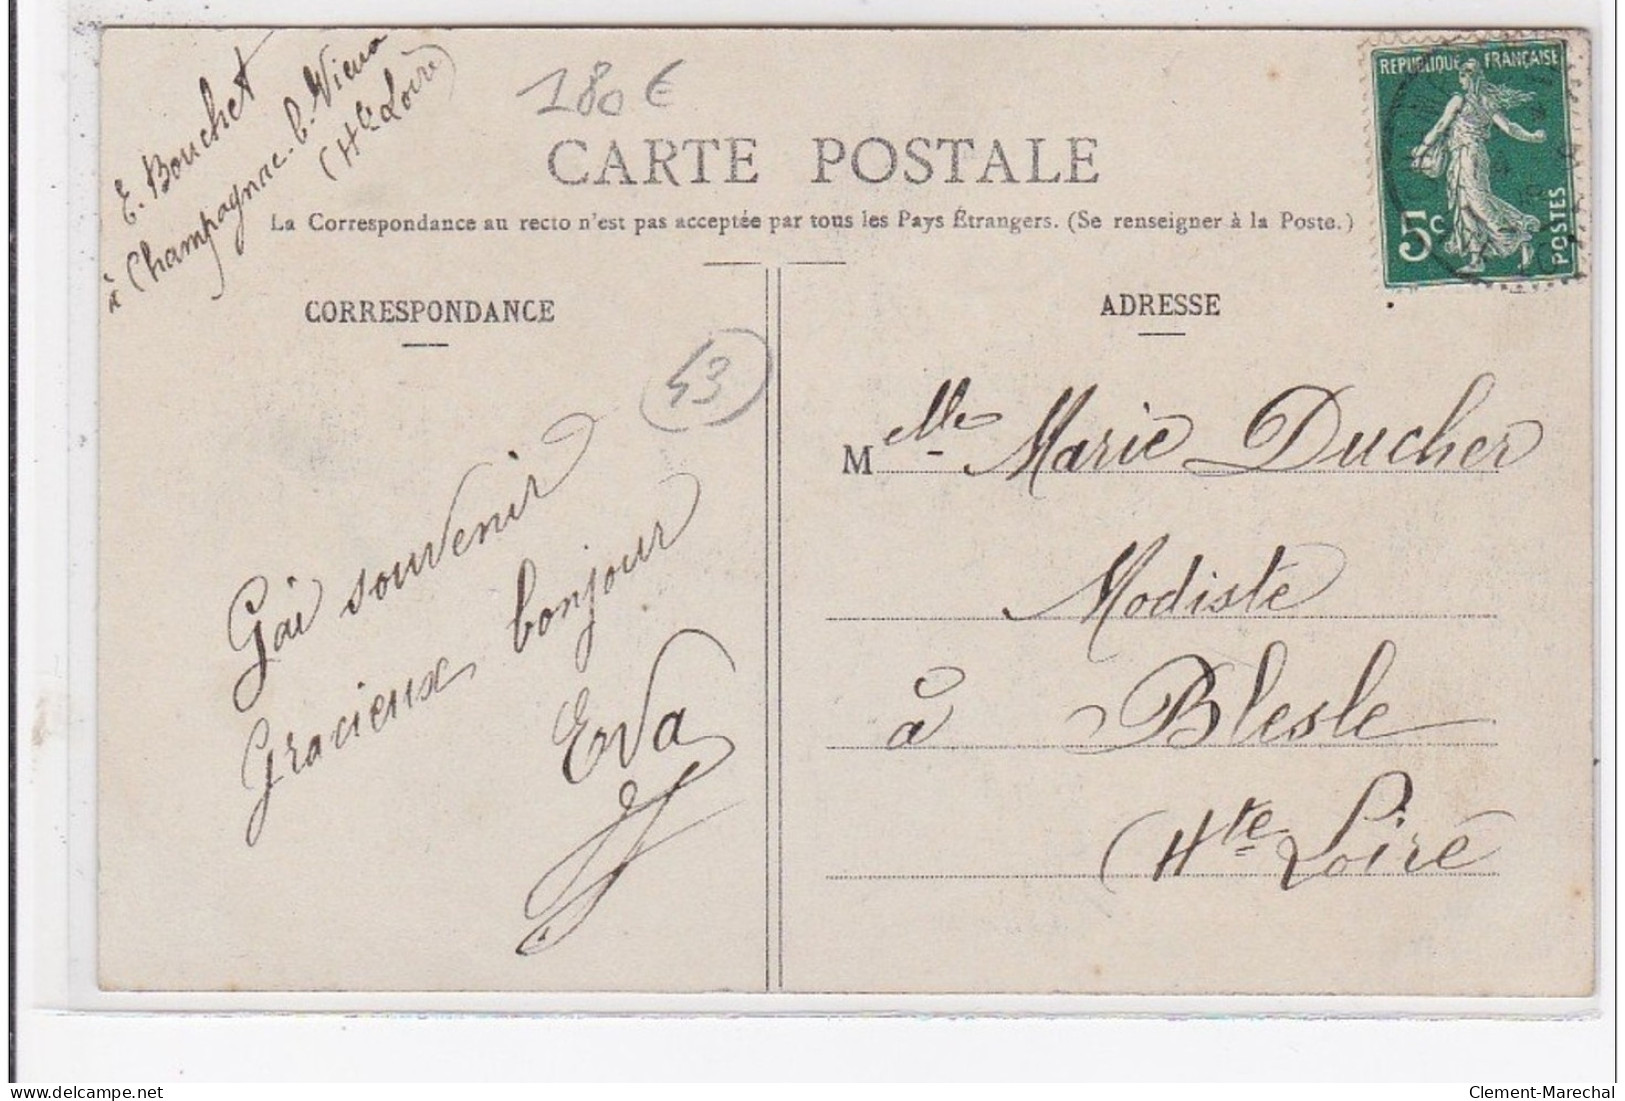 E. Bouchet
à Champagnac-l-Vieux
(Hte Loire)
180€
CARTE POSTALE
La Correspondance au recto n'est pas acceptée par tous les Pays Étrangers. (Se renseigner à la Poste.)
REPUBLIQUE FRANÇAISE
5c
POSTES
CORRESPONDANCE
43
Gai souvenir
Gracieux bonjour
Eva
ADRESSE
M elle Marie Ducher
Modiste
à Blesle
(Hte Loire
delcampe.net
Clement-Marechal